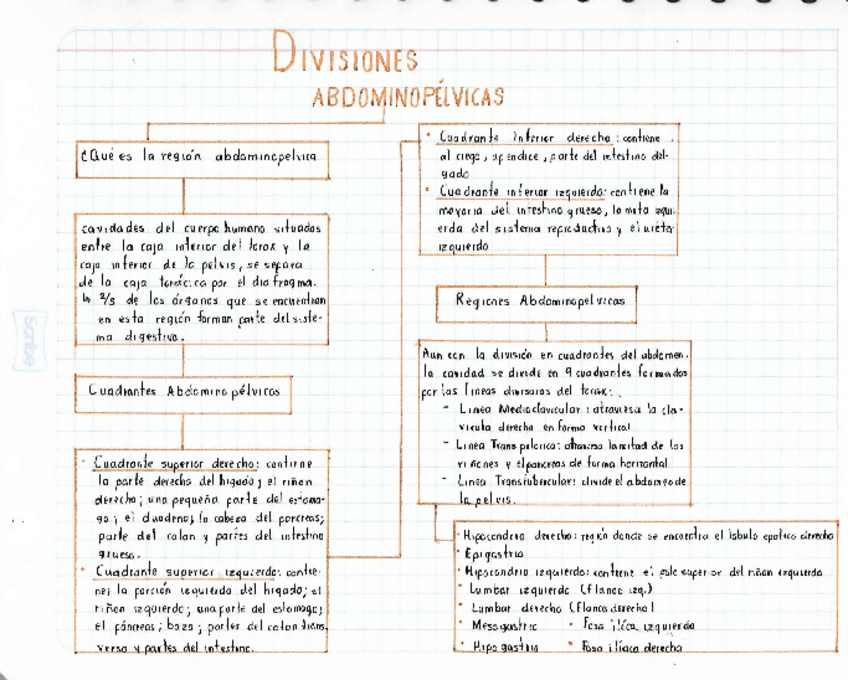 DIVISIONES
ABDOMINOPÉLVICAS
¿Qué es la región abdominopelvica
cavidades del cuerpo humano situadas
entre la caja inferior del torax y la
caja inferior de la pelvis, se separa
de la caja torácica por el diafragma.
↳ 2/3 de los órganos que se encuentran
en esta región forman parte del siste-
ma digestivo.
Cuadrantes Abdominopélvicos
• Cuadrante superior derecho: contiene
la parte derecha del higado; el riñon
derecho; una pequeña parte del estoma-
go; el duodeno; la cabeza del pancreas;
parte del colon y partes del intestino
grueso.
• Cuadrante superior izquierdo: contie-
ne; la porción izquierda del higado; el
riñon izquierdo; una parte del estomago;
el páncreas; bazo; partes del colon trans
verso y partes del intestino.
• Cuadrante Inferior derecho: contiene
al ciego, apendice, parte del intestino del-
gado
• Cuadrante inferior izquierdo: contiene la
mayoria del intestino grueso, la mitad izqui-
erda del sistema reproductivo y el uréter
izquierdo
Regiones Abdominopelvicas
Aun con la división en cuadrantes del abdomen,
la cavidad se divide en 9 cuadrantes formados
por las líneas divisorias del torax:
- Linea Medioclavicular: atraviesa la cla-
vicula derecha en forma vertical
- Linea Transpilorica: atraviesa la mitad de los
riñones y el pancreas de forma horizontal
- Linea Transtubercular: divide el abdomen de
la pelvis.
• Hipocondrio derecho: región donde se encuentra el lobulo epatico derecho
• Epigastrio
• Hipocondrio izquierdo: contiene el polo superior del riñon izquierdo
• Lumbar izquierdo (flanco izq.)
• Lumbar derecho (flanco derecho)
• Mesogastrio • Fosa ilíaca izquierda
• Hipogastrio • Fosa ilíaca derecha
scribe